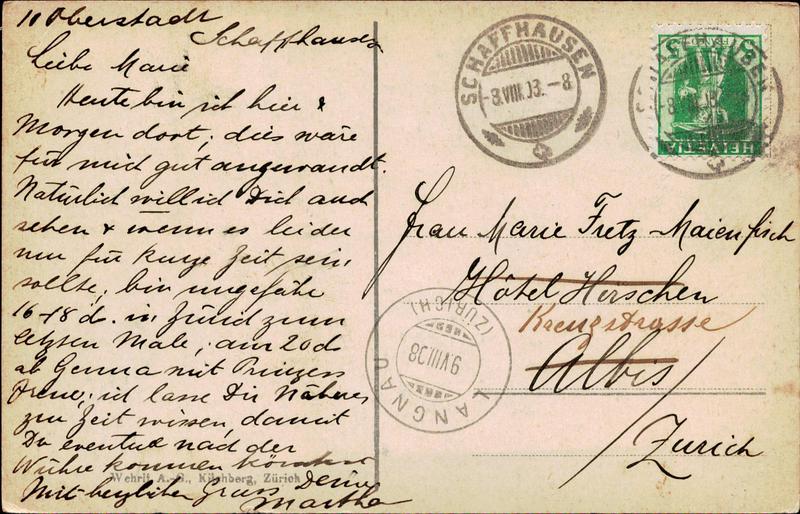 10 Oberstadt
Schaffhausen
Liebe Marie
Heute bin ich hier &
Morgen dort; dies wäre
für mich gut angewandt.
Natürlich will ich Dich auch
sehen & wenn es leider
nur für kurze Zeit sein
sollte; bin ungefähr
16-18 d. in Zürich zum
letzten Male; am 20 ds
ab Genua mit Prinzess
Irene; ich lasse Dir Näheres
zur Zeit wissen, damit
Du eventuel nach der
Wühre kommen könntest
Mit herzlichen Gruss Deine
Martha
Wehrli A.-G., Kilchberg, Zürich
SCHAFFHAUSEN
-8.VIII.08.-8
HELVETIA
5
Frau Marie Fretz-Maienfisch
Hôtel Hirschen
Kreuzstrasse
Albis
Zürich
LANGNAU
(ZÜRICH)
9.VIII.08